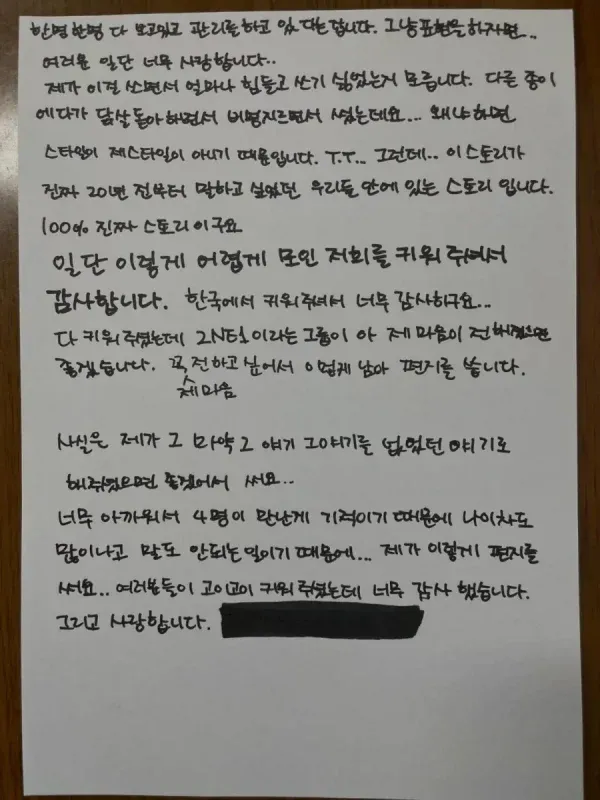 한명한명 다 보고있고 관리를하고 있 다는 겁니다. 그냥표현을 하자면..
여러분 일단 너무 사랑합니다..
제가 이걸 쓰면서 얼마나 힘들고 쓰기 싫었는지 모릅니다. 다른 종이
에다가 닭살돋아 하면서 비명지르면서 썼는데요... 왜냐하면
스타일이 제스타일이 아니기 때문입니다. T.T... 그런데.. 이스토리가
진짜 20년 전부터 말하고 싶었던 우리들 안에 있는 스토리 입니다.
100% 진짜 스토리이구요
일단 이렇게 어렵게 모인 저희를 키워 주셔서
감사합니다. 한국에서 키워주셔서 너무 감사하구요...
다 키워주셨는데 2NE1이라는 그룹이 아 제 마음이 전해졌으면
좋겠습니다. 꼭 전하고 싶어서 이렇게 남아 편지를 씁니다.
제마음
사실은 제가 그 마약 그 얘기 그얘기를 없었던 얘기로
해주셨으면 좋겠어서 써요..
너무 아까워서 4명이 만난게 기적이기 때문에 나이차도
많이나고 말도 안되는일이기 때문에... 제가 이렇게 편지를
써요.. 여러분들이 고이고이 키워 주셨는데 너무 감사 했습니다.
그리고 사랑합니다.